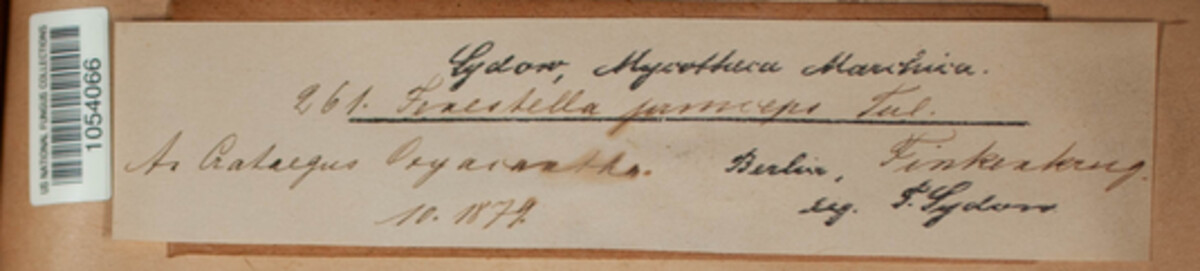 US NATIONAL FUNGUS COLLECTIONS
1054066
Sydow, Mycotheca Marchica.
261. Fenestella princeps Tul.
An Crataegus Oxyacantha. Berlin, Finkenkrug.
10. 1879. leg. P. Sydow